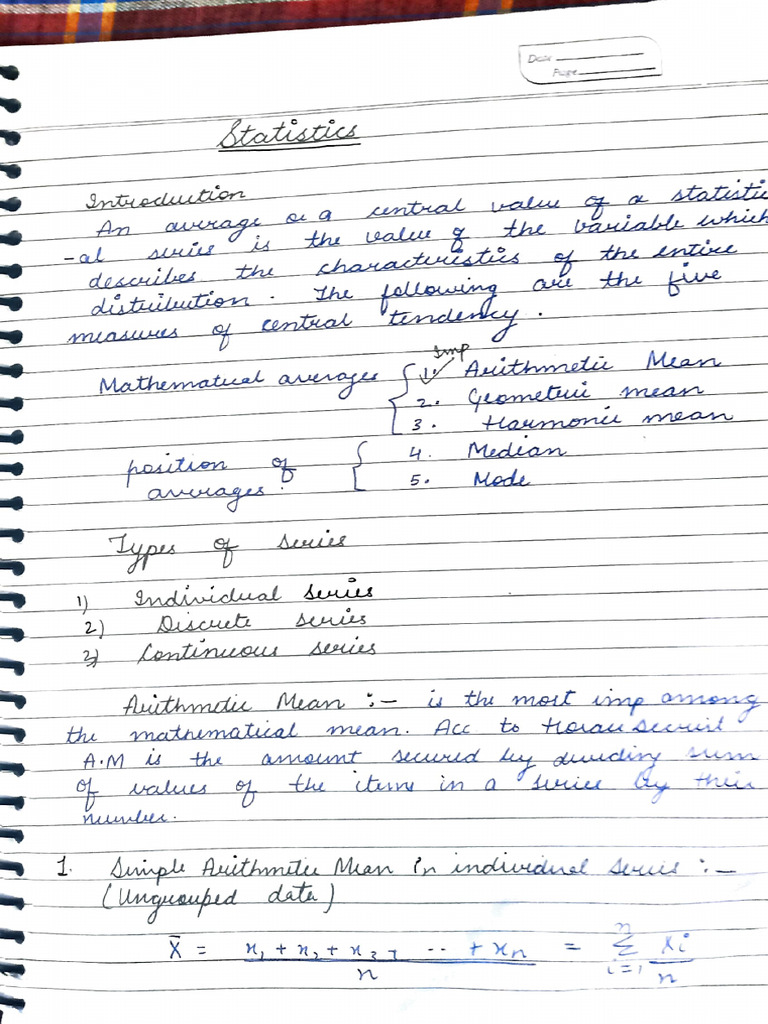 Date
Page
Statistics
Introduction
An average or a central value of a statistic
-al series is the value of the variable which
describes the characteristics of the entire
distribution. The following are the five
measures of central tendency.
Imp
Mathematical averages { 1. ✓ Arithmetic Mean
2. Geometric mean
3. Harmonic mean
position of averages: { 4. Median
5. Mode
Types of series
1) Individual series
2) Discrete series
3) Continuous series
Arithmetic Mean :- is the most imp among
the mathematical mean. Acc to Horace Secrist
A.M is the amount secured by dividing sum
of values of the items in a series by their
number.
1. Simple Arithmetic Mean in individual series :-
(Ungrouped data)
X̄ = (x₁ + x₂ + x₃ + .. + xₙ) / n = Σᵢ₌₁ⁿ xi / n